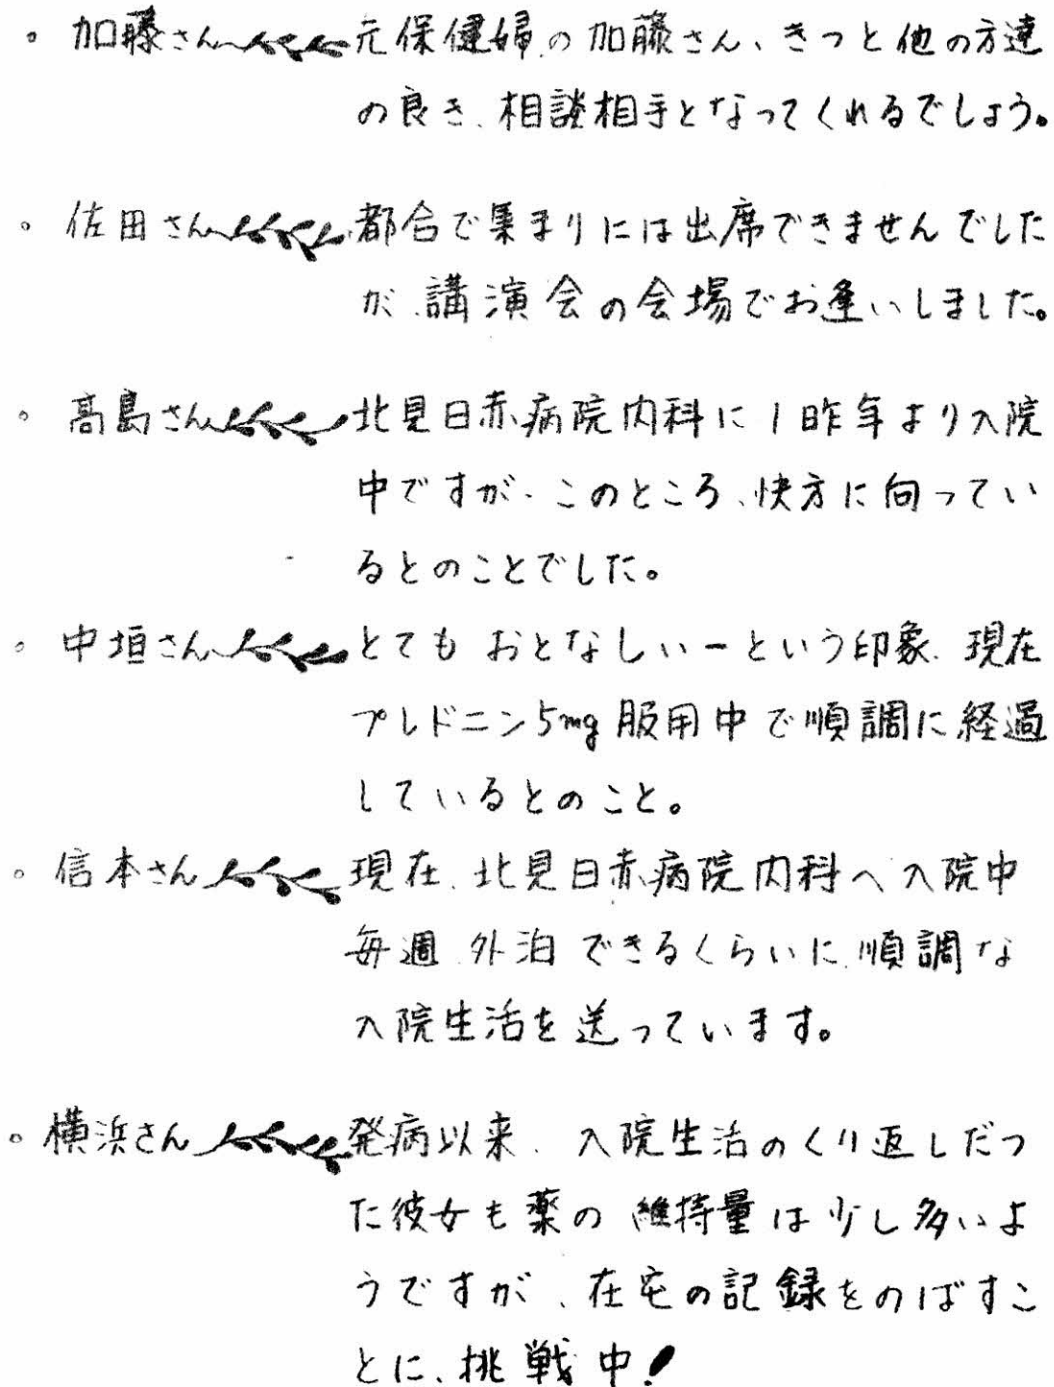 。加藤さん 元保健婦の加藤さん、きっと他の方達
の良き、相談相手となってくれるでしょう。
。佐田さん 都合で集まりには出席できませんでした
が、講演会の会場でお逢いしました。
。高島さん 北見日赤病院内科に1昨年より入院
中ですが、このところ、快方に向ってい
るとのことでした。
。中垣さん とてもおとなしいーという印象、現在
プレドニン5mg服用中で順調に経過
しているとのこと。
。信本さん 現在、北見日赤病院内科へ入院中
毎週、外泊できるくらいに、順調な
入院生活を送っています。
。横浜さん 発病以来、入院生活のくり返しだっ
た彼女も薬の維持量は少し多いよ
うですが、在宅の記録をのばすこ
とに、挑戦中!